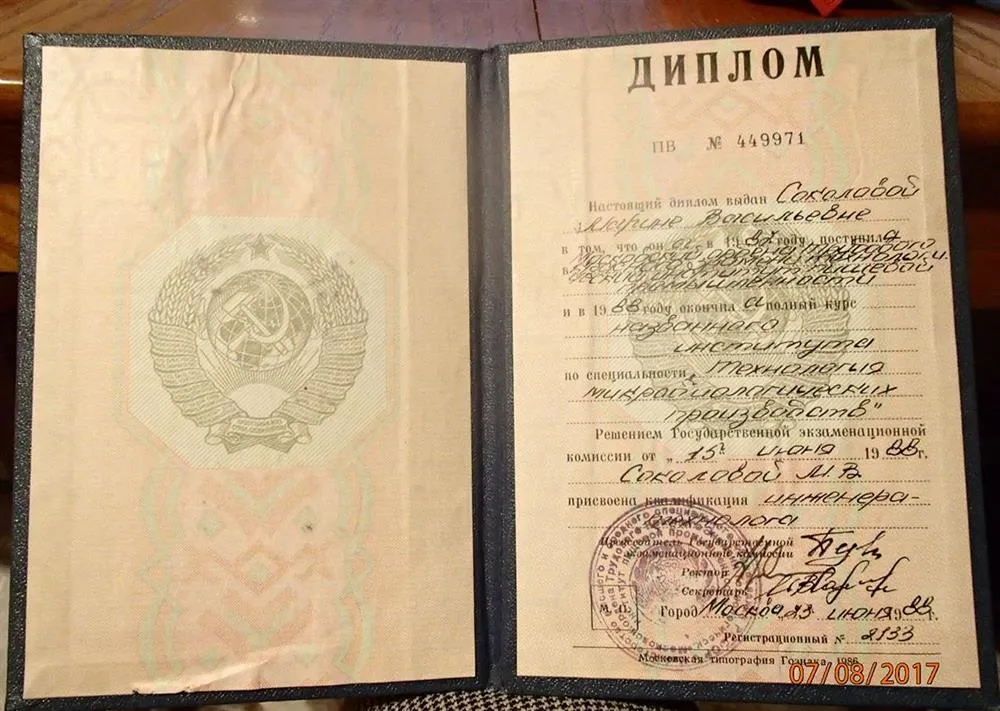 ДИПЛОМ
ПВ № 449971
Настоящий диплом выдан Соколовой
Марине Васильевне
в том, что он а в 19 году поступил а
Московский ордена Трудового
в технологи-
ческий институт пищевой
промышленности
и в 19 88 году окончил а полный курс
названного
института
по специальности „Технология
микробиологических
производств"
Решением Государственной экзаменационной
комиссии от „ 15 " июня 19 88 г.
Соколовой М.В.
присвоена квалификация инженера-
технолога
Председатель Государственной
экзаменационной комиссии
Ректор
Секретарь
М. П. Город Москва 23 июня 19 88 г.
Регистрационный № 2133
Московская типография Гознака. 1986.
07/08/2017